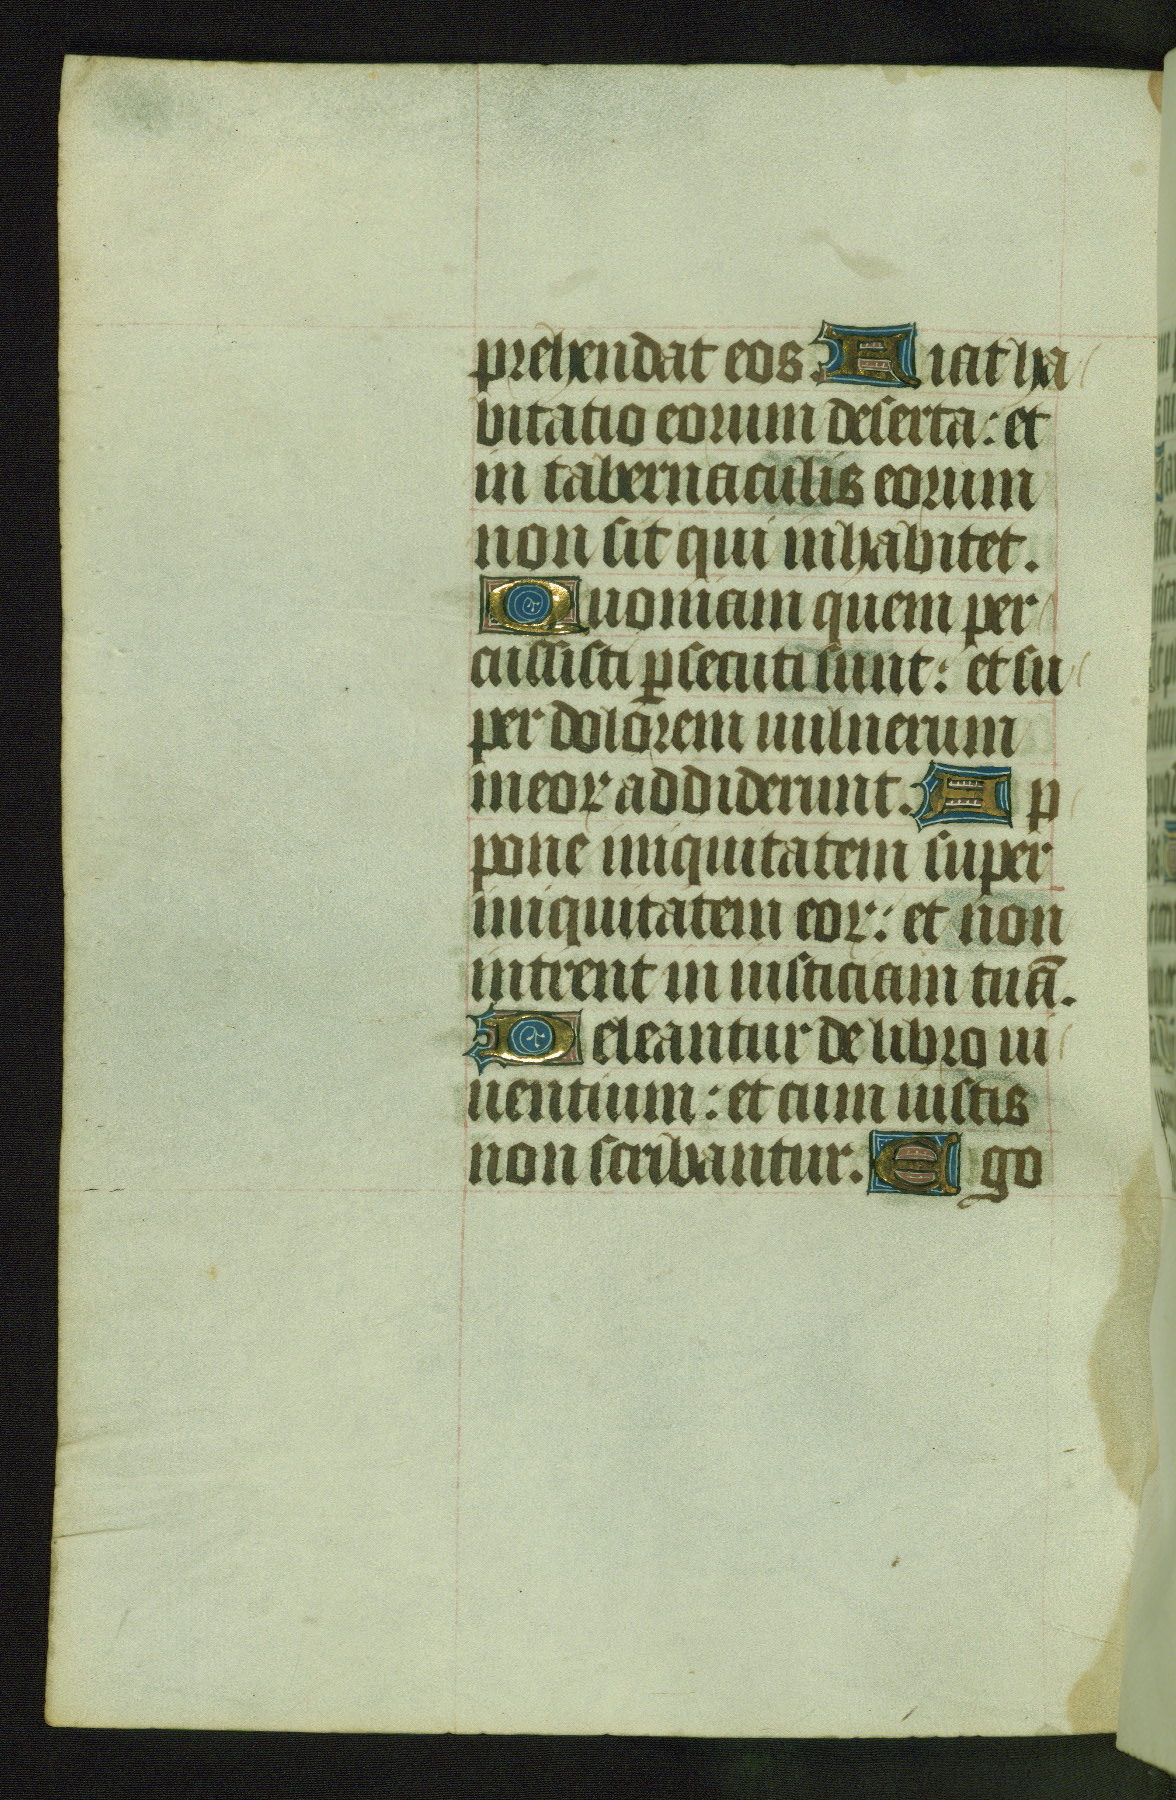 prehendat eos. Ficit ha
bitatio eorum deserta: et
in tabernaculis eorum
non sit qui inhabitet.
Quoniam quem per
cussisti ꝑsecuti sunt: et su
per dolorem uulnerum
meoꝝ addiderunt. Ap
pone iniquitatem super
iniquitatem eoꝝ: et non
intrent in iusticiam tuā.
Deleantur de libro ui
uentium: et cum iustis
non scribantur. Ego